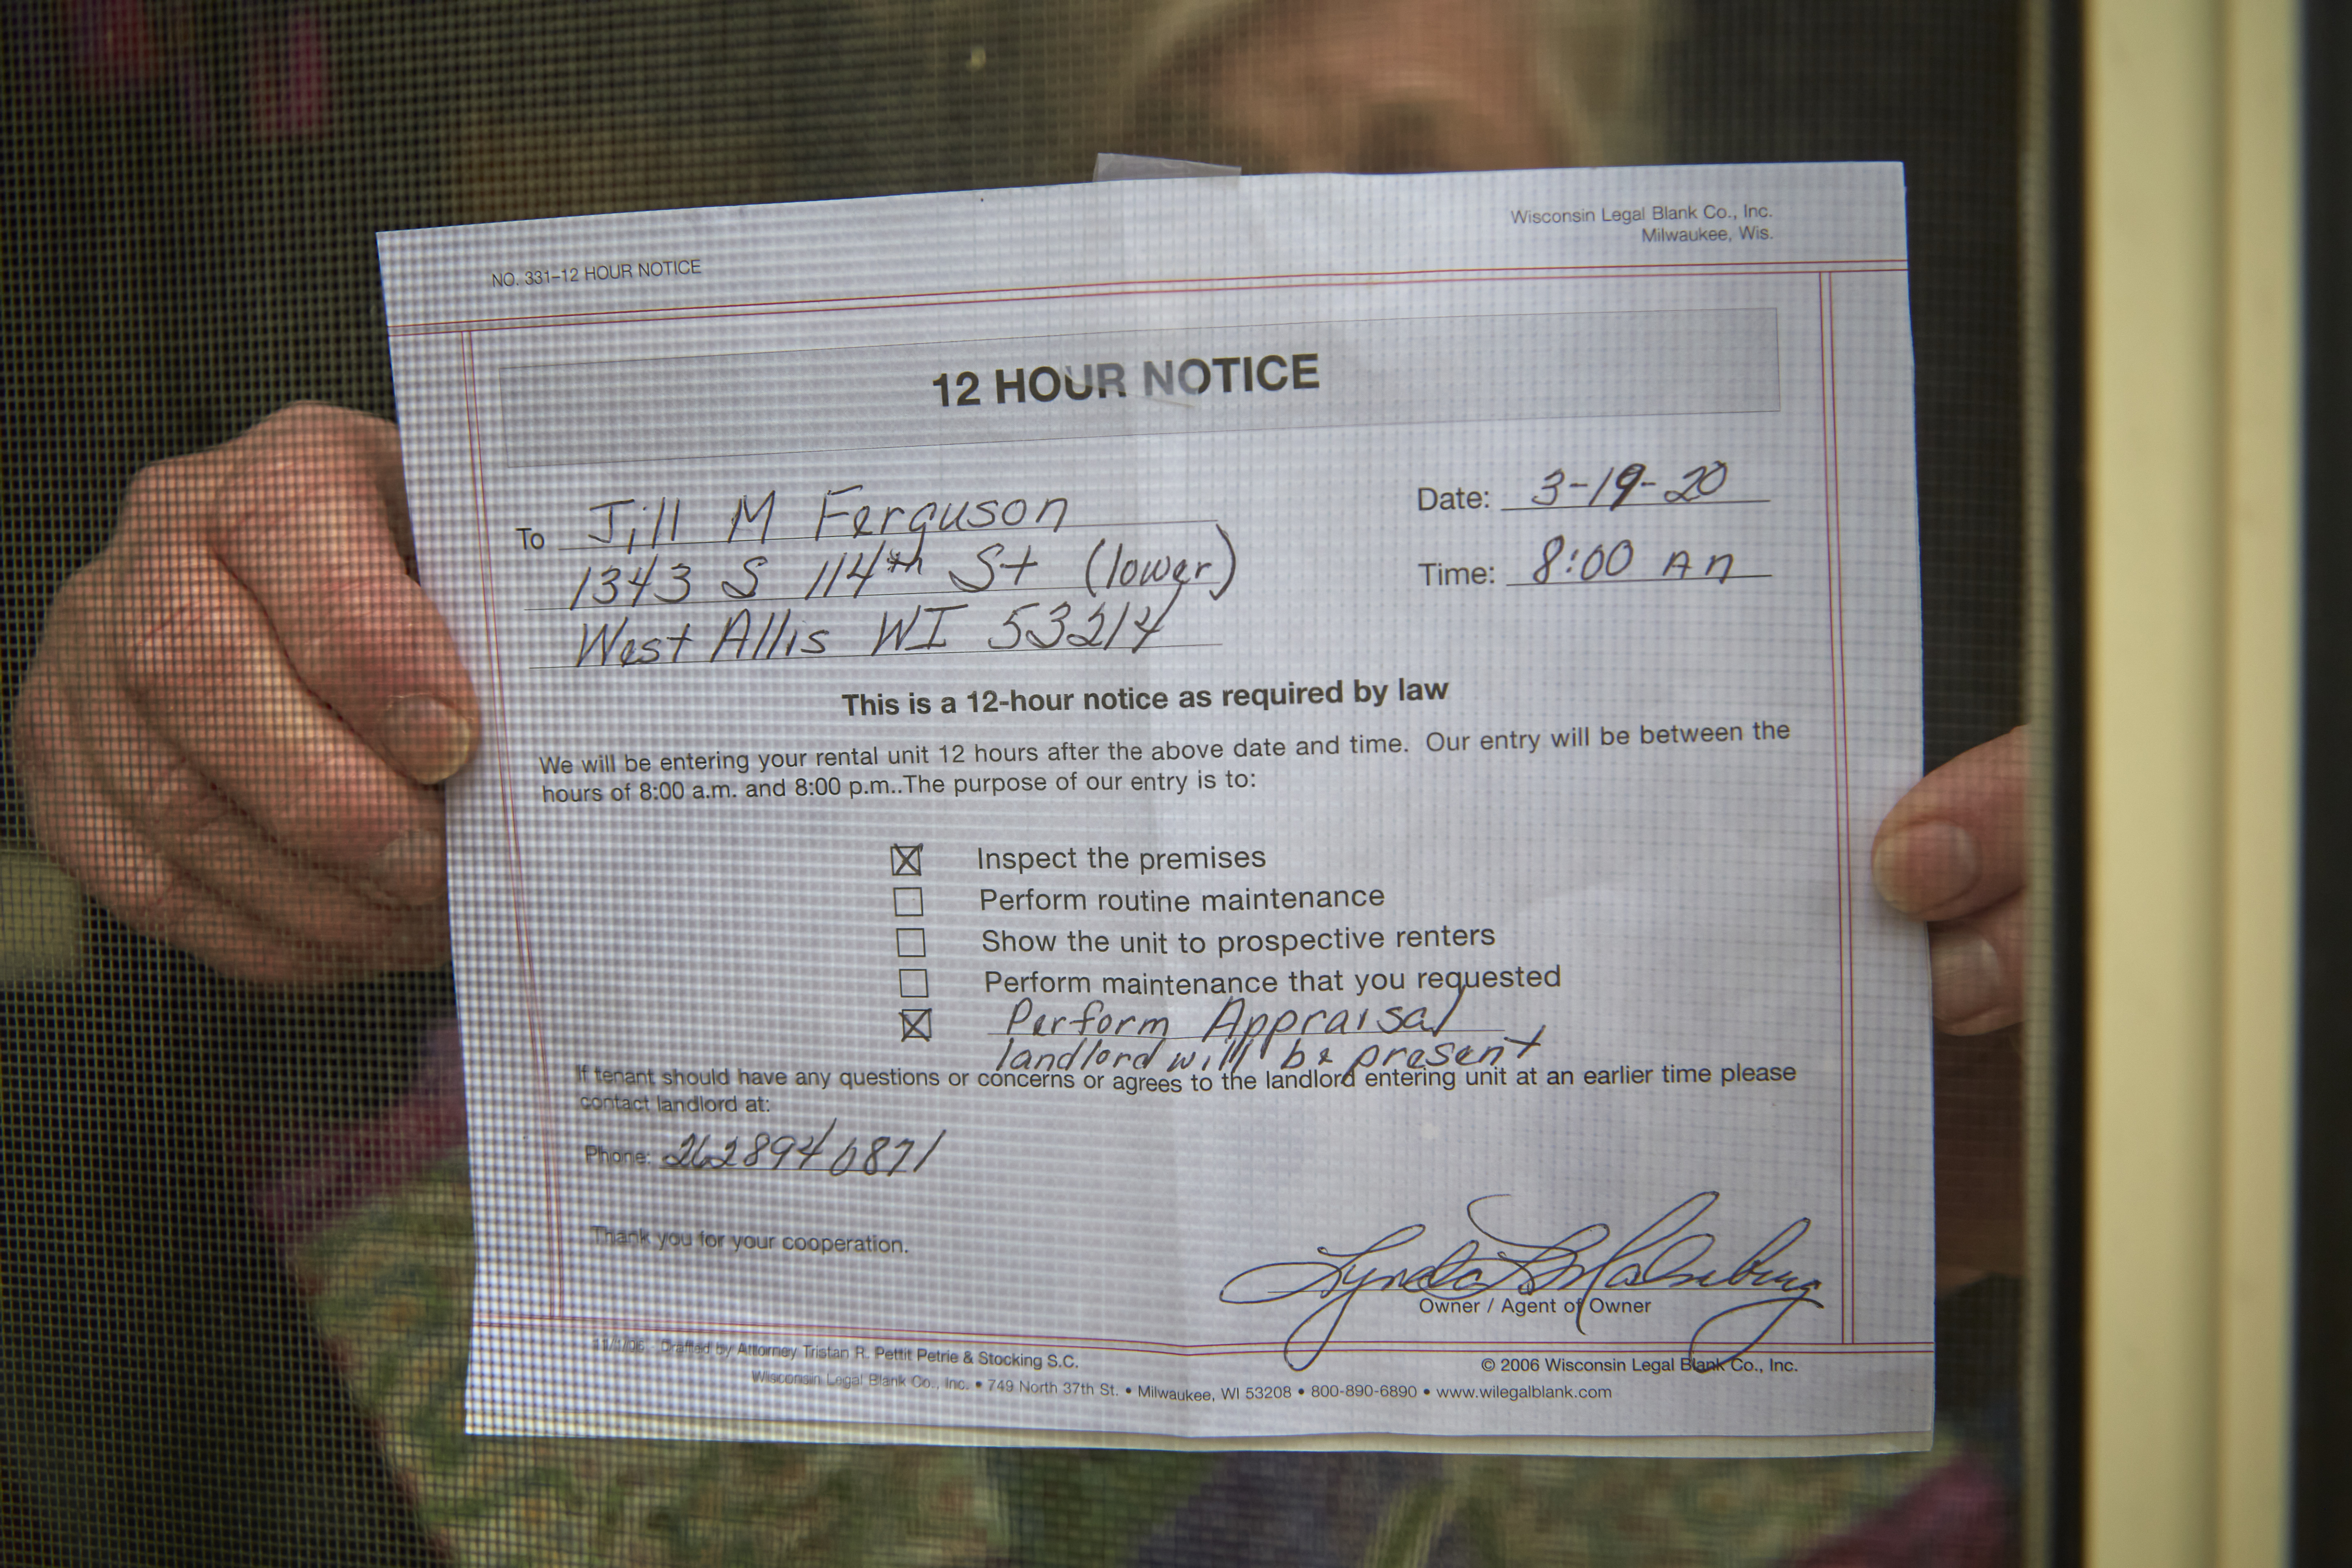 Wisconsin Legal Blank Co., Inc.
Milwaukee, Wis.
NO. 331–12 HOUR NOTICE
12 HOUR NOTICE
To Jill M Ferguson
1343 S 114th St (lower)
West Allis WI 53214
Date: 3-19-20
Time: 8:00 AM
This is a 12-hour notice as required by law
We will be entering your rental unit 12 hours after the above date and time. Our entry will be between the
hours of 8:00 a.m. and 8:00 p.m..The purpose of our entry is to:
Inspect the premises
Perform routine maintenance
Show the unit to prospective renters
Perform maintenance that you requested
Perform Appraisal
landlord will be present
If tenant should have any questions or concerns or agrees to the landlord entering unit at an earlier time please
contact landlord at:
Phone: 262 894 0871
Thank you for your cooperation.
Owner / Agent of Owner
11/1/06 - Drafted by Attorney Tristan R. Pettit Petrie & Stocking S.C.
© 2006 Wisconsin Legal Blank Co., Inc.
Wisconsin Legal Blank Co., Inc. • 749 North 37th St. • Milwaukee, WI 53208 • 800-890-6890 • www.wilegalblank.com